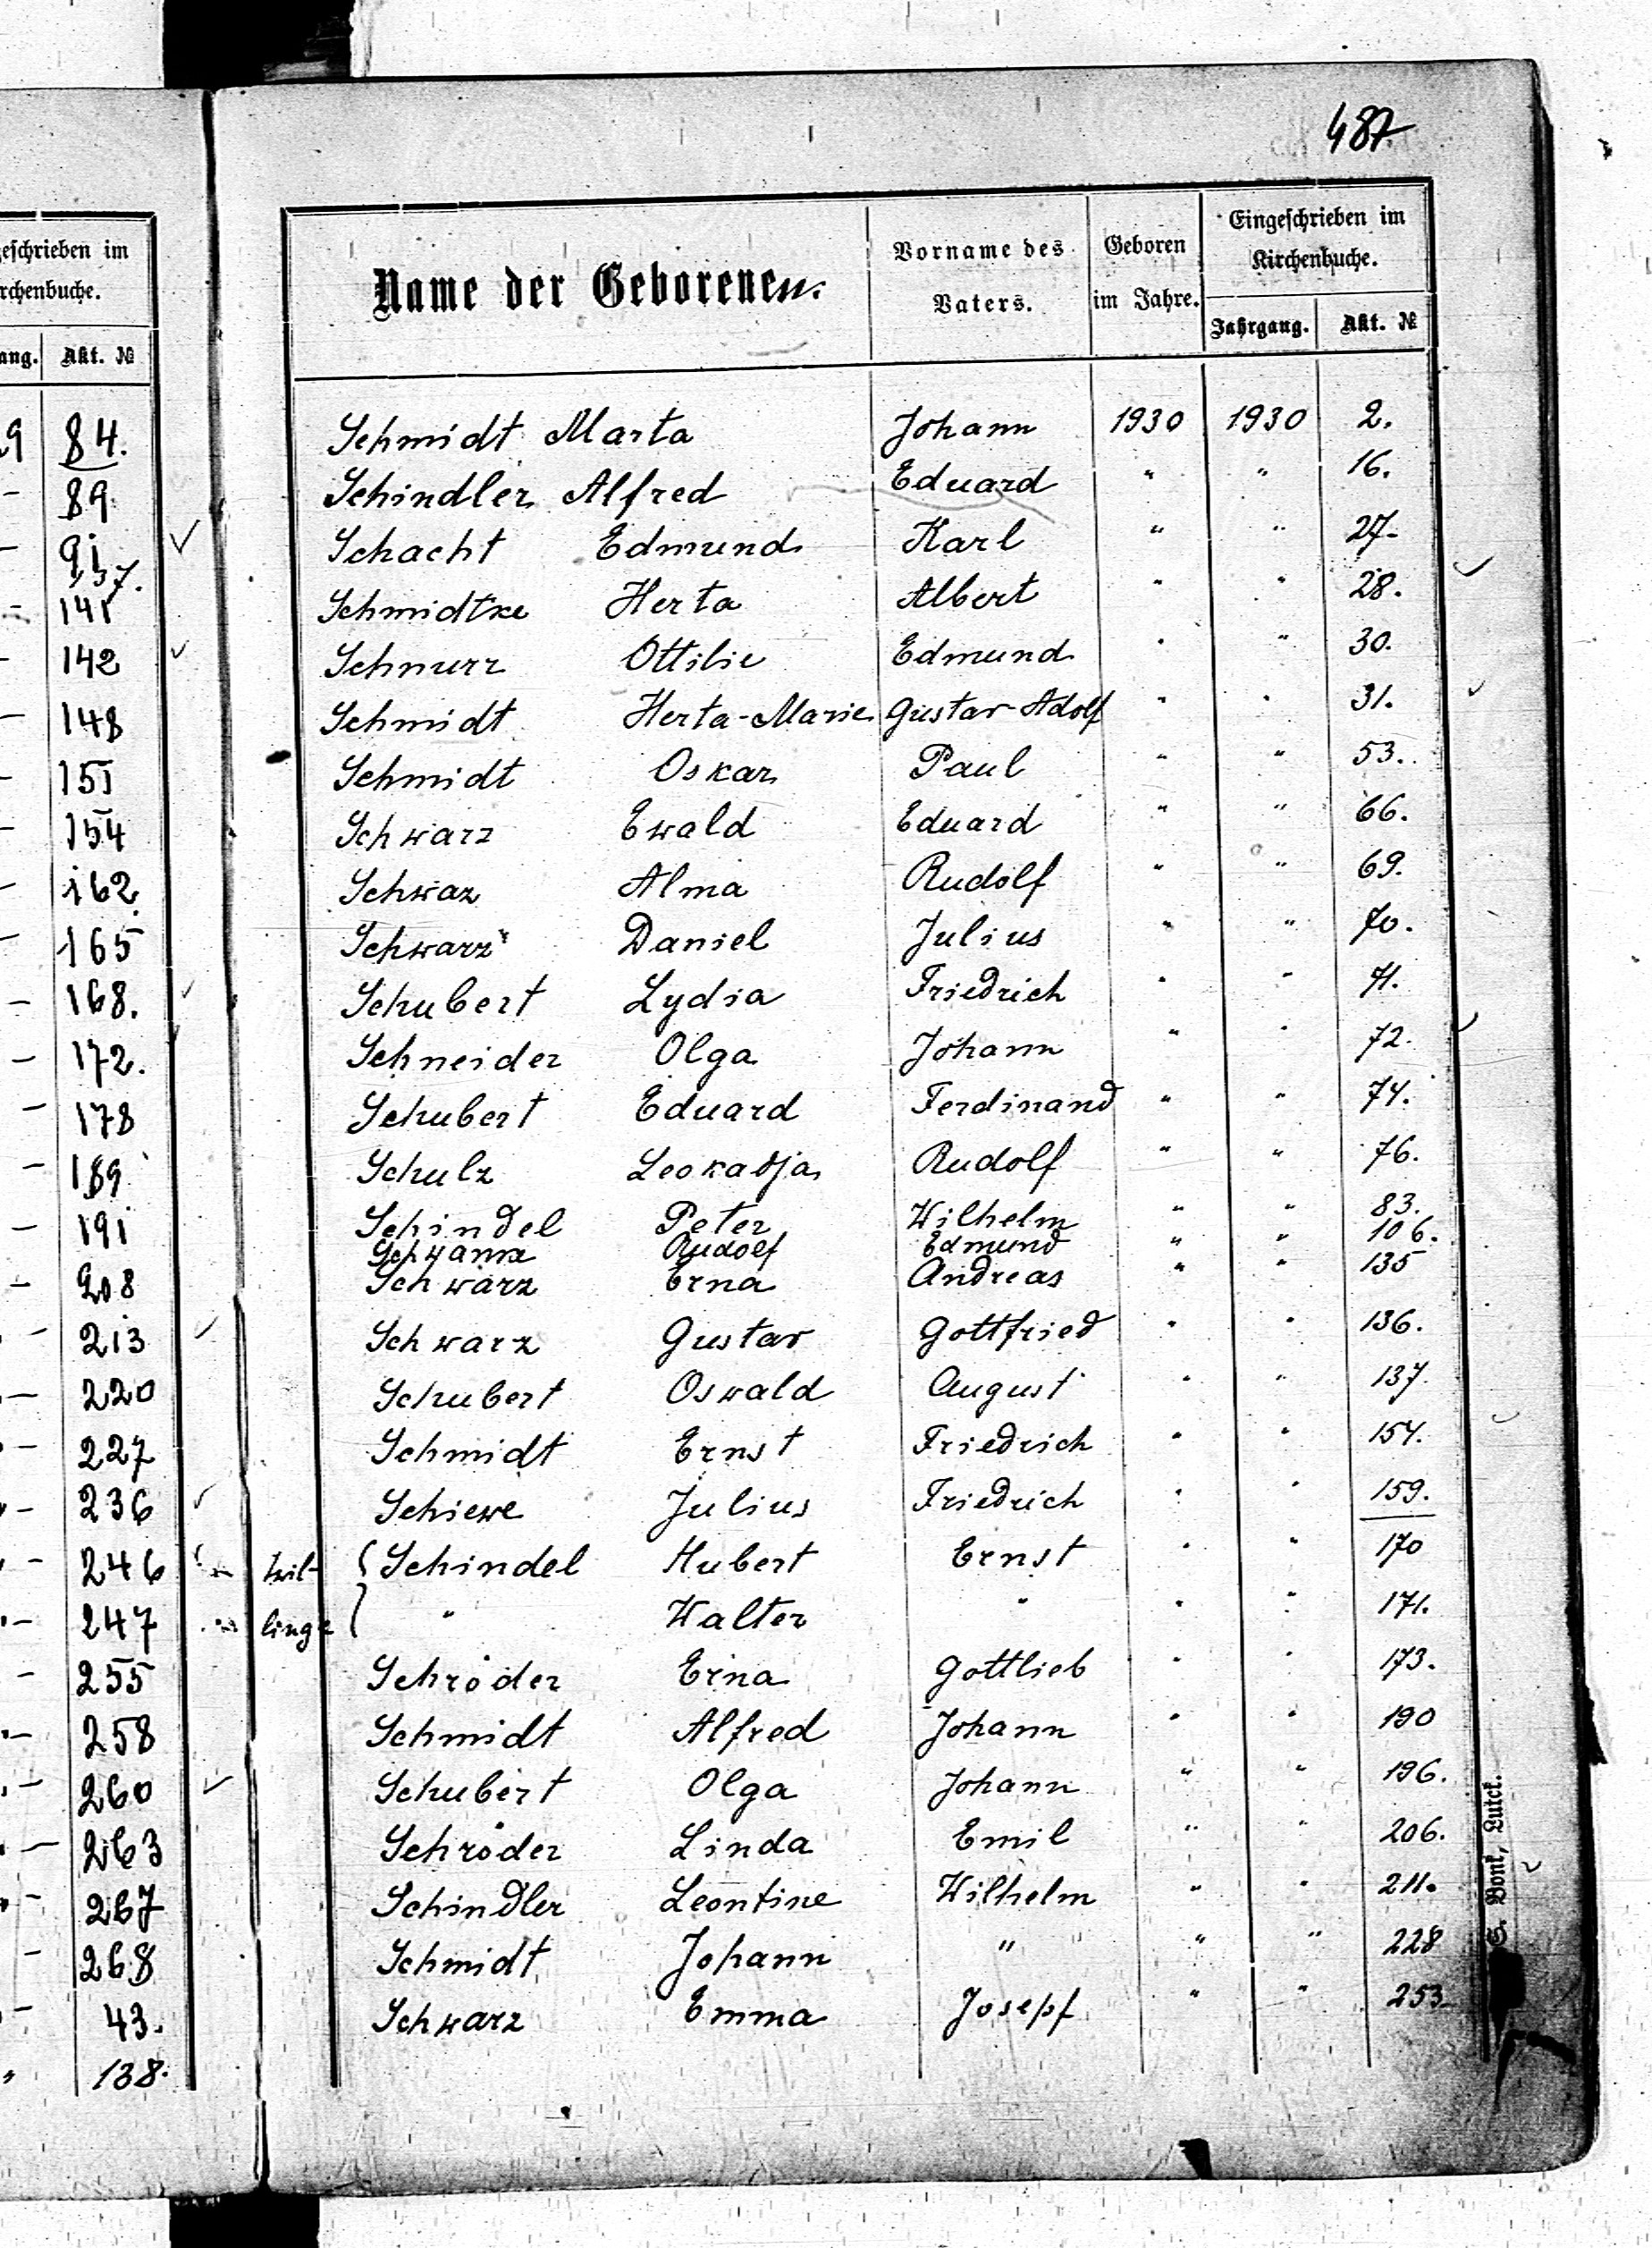 487
geschrieben im
rchenbuche.
ang. Akt. №
9 84.
– 89.
– 91
137.
– 141
– 142
– 148
– 151
– 154
– 162
– 165
– 168.
– 172.
– 178
– 189
– 191
– 208
– 213
– 220
– 227
"– 236
– 246
"– 247
– 255
"– 258
– 260
– 263
"– 267
– 268
– 43.
" 138.
Name der Geborenen.
Vorname des
Vaters.
Geboren
im Jahre.
Eingeschrieben im
Kirchenbuche.
Jahrgang. Akt. №
Schmidt Marta Johann 1930 1930 2.
Schindler Alfred Eduard " " 16.
Schacht Edmund Karl " " 27.
Schmidtke Herta Albert " " 28.
Schnurr Ottilie Edmund " " 30.
Schmidt Herta-Marie Gustav-Adolf " " 31.
Schmidt Oskar Paul " " 53.
Schwarz Ewald Eduard " " 66.
Schwaz Alma Rudolf " " 69.
Schwarz Daniel Julius " " 70.
Schubert Lydia Friedrich " " 71.
Schneider Olga Johann " " 72.
Schubert Eduard Ferdinand " " 74.
Schulz Leokadja Rudolf " " 76.
Schindel Peter Wilhelm " " 83.
Rudolf Edmund " " 106.
Schwarz Erna Andreas " " 135
Schwarz Gustav Gottfried " " 136.
Schubert Oswald August " " 137.
Schmidt Ernst Friedrich " " 154.
Schiewe Julius Friedrich " " 159.
Schindel Hubert Ernst " " 170
linge " Walter " " " 171.
Schröder Erna Gottlieb " " 173.
Schmidt Alfred Johann " " 190
Schubert Olga Johann " " 196.
Schröder Linda Emil " " 206.
Schindler Leontine Wilhelm " " 211.
Schmidt Johann " " " 228
Schwarz Emma Josepf " " 253
Bonk, Luck.